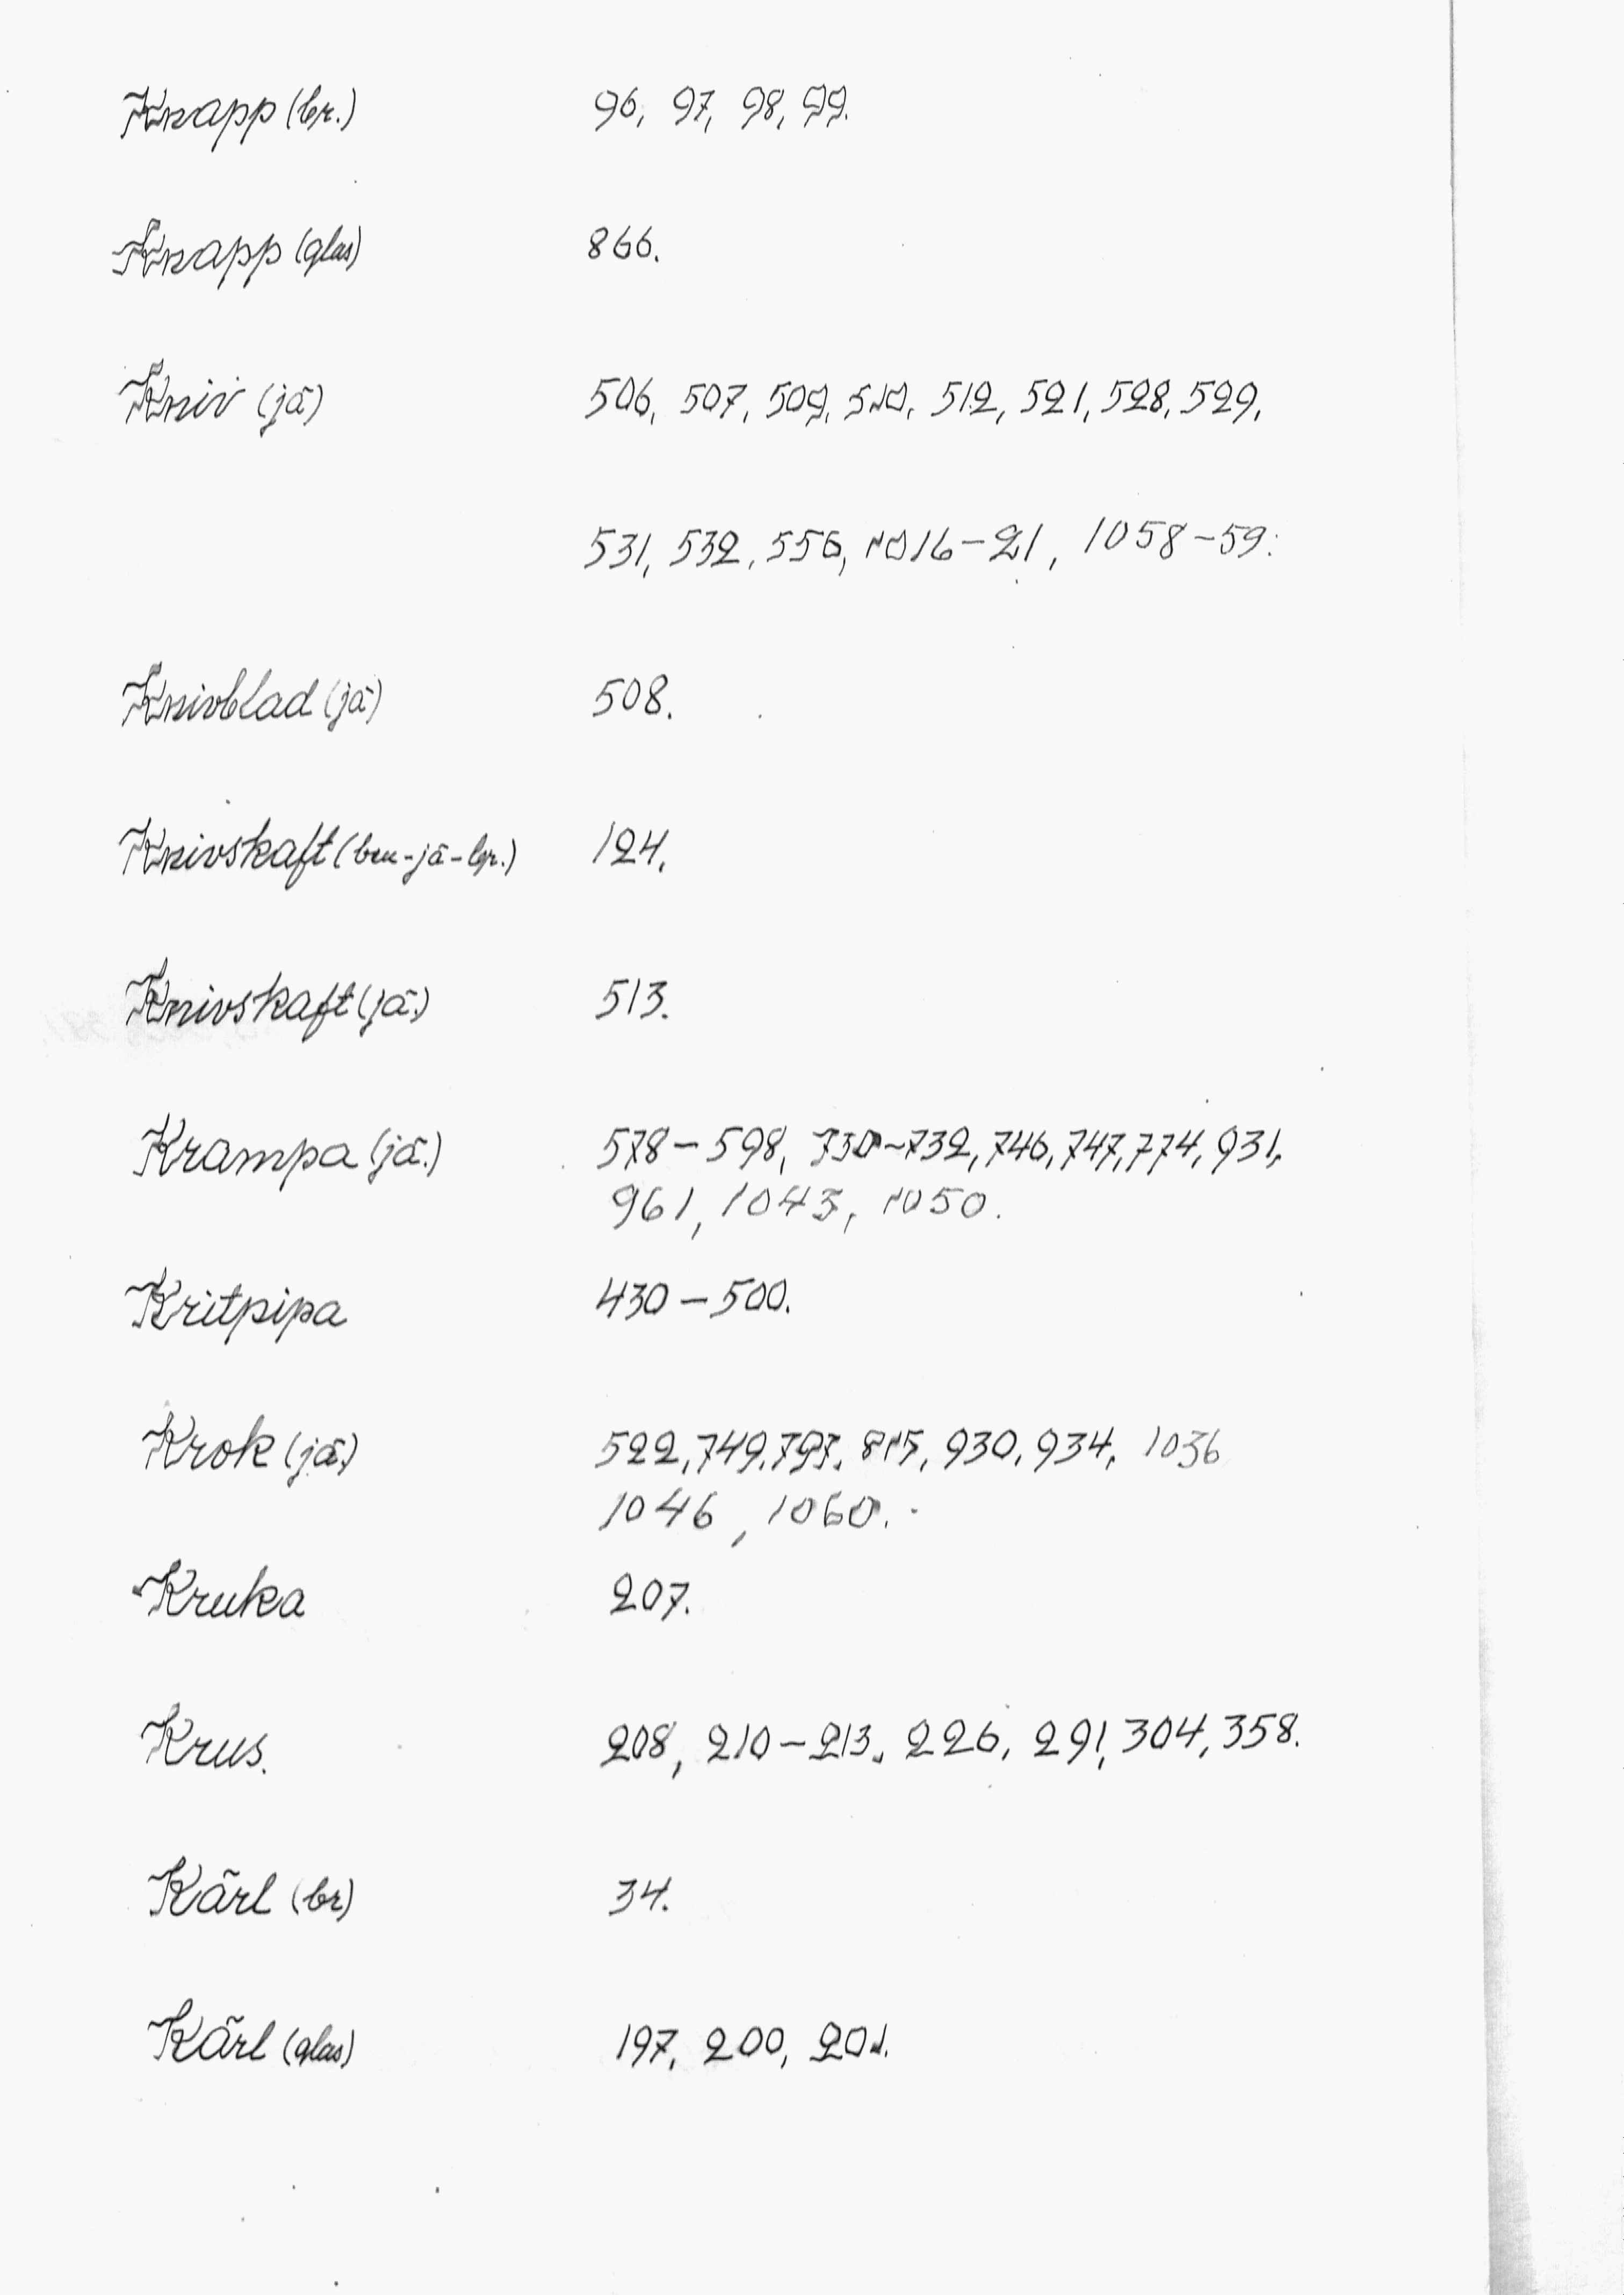 Knapp (br.) 96, 97, 98, 99.
Knapp (glas) 866.
Kniv (jä) 506, 507, 509, 510, 512, 521, 528, 529,
531, 532, 556, 1016-21, 1058-59.
Knivblad (jä) 508.
Knivskaft (ben-jä-br.) 124.
Knivskaft (jä.) 513.
Krampa (jä.) 578-598, 730-732, 746, 747, 774, 931,
961, 1043, 1050.
Kritpipa 430-500.
Krok (jä.) 522, 749, 797, 815, 930, 934, 1036
1046, 1060.
Kruka 207.
Krus. 208, 210-213, 226, 291, 304, 358.
Kärl (br) 34.
Kärl (glas) 197, 200, 201.